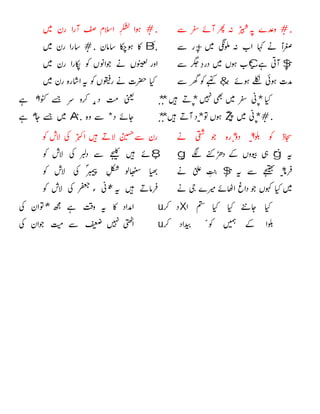 #. وعدے پہ شبیر نہ پھر آئے سفر سے #. ہوا لشکر اسلام صف آرا رن میں
صغرا نے کہا اب نہ بلونگی میں پدر سے B. کا ہوچکا سامان #. سارا رن میں
$ آتی ہے C ب ہوں میں دردِ جگر سے اور لعینوں نے جوانوں کو پکارا رن میں
مدت ہوئی نکلے ہوئے & کنبے کو گھر سے کیا حضرت نے رفیقوں کو یہ اشارہ رن میں
کیا *نی سفر میں بھی نہیں *تے ہیں ** یعنی مت دیر کرو سر جسے کٹوا* ہے
#. *نی میں Z ہوں تو *د آتے ہیں ** جائے د* سے وہ A. جسے میں جا* ہے
سجاد کو بلوا* وہ*رہ جو شقی نے رن سے حسین لاتے ہیں اکبر کی لاش کو
یہ gi ہی بیووں کے دھڑکنے لگے g 8ئے ہیں کلیجے سے دلبر کی لاش کو
فرما* بھتیجے سے یہ $ بنتِ علی نے بھیا سنبھالو شکلِ پیمبر کی لاش کو
میں کیا کہوں جو داغ اٹھائے میرے جی نے فرماتے ہیں یہ *نی ء جعفر کی لاش کو
کیا جانئے کیا کیا ستم اXد کر u امداد کا یہ وقت ہے مجھ *توان کی
بلوا کے ہمیں کو* بیداد کر u اٹھتی نہیں ضعیف سے میت جوان کی